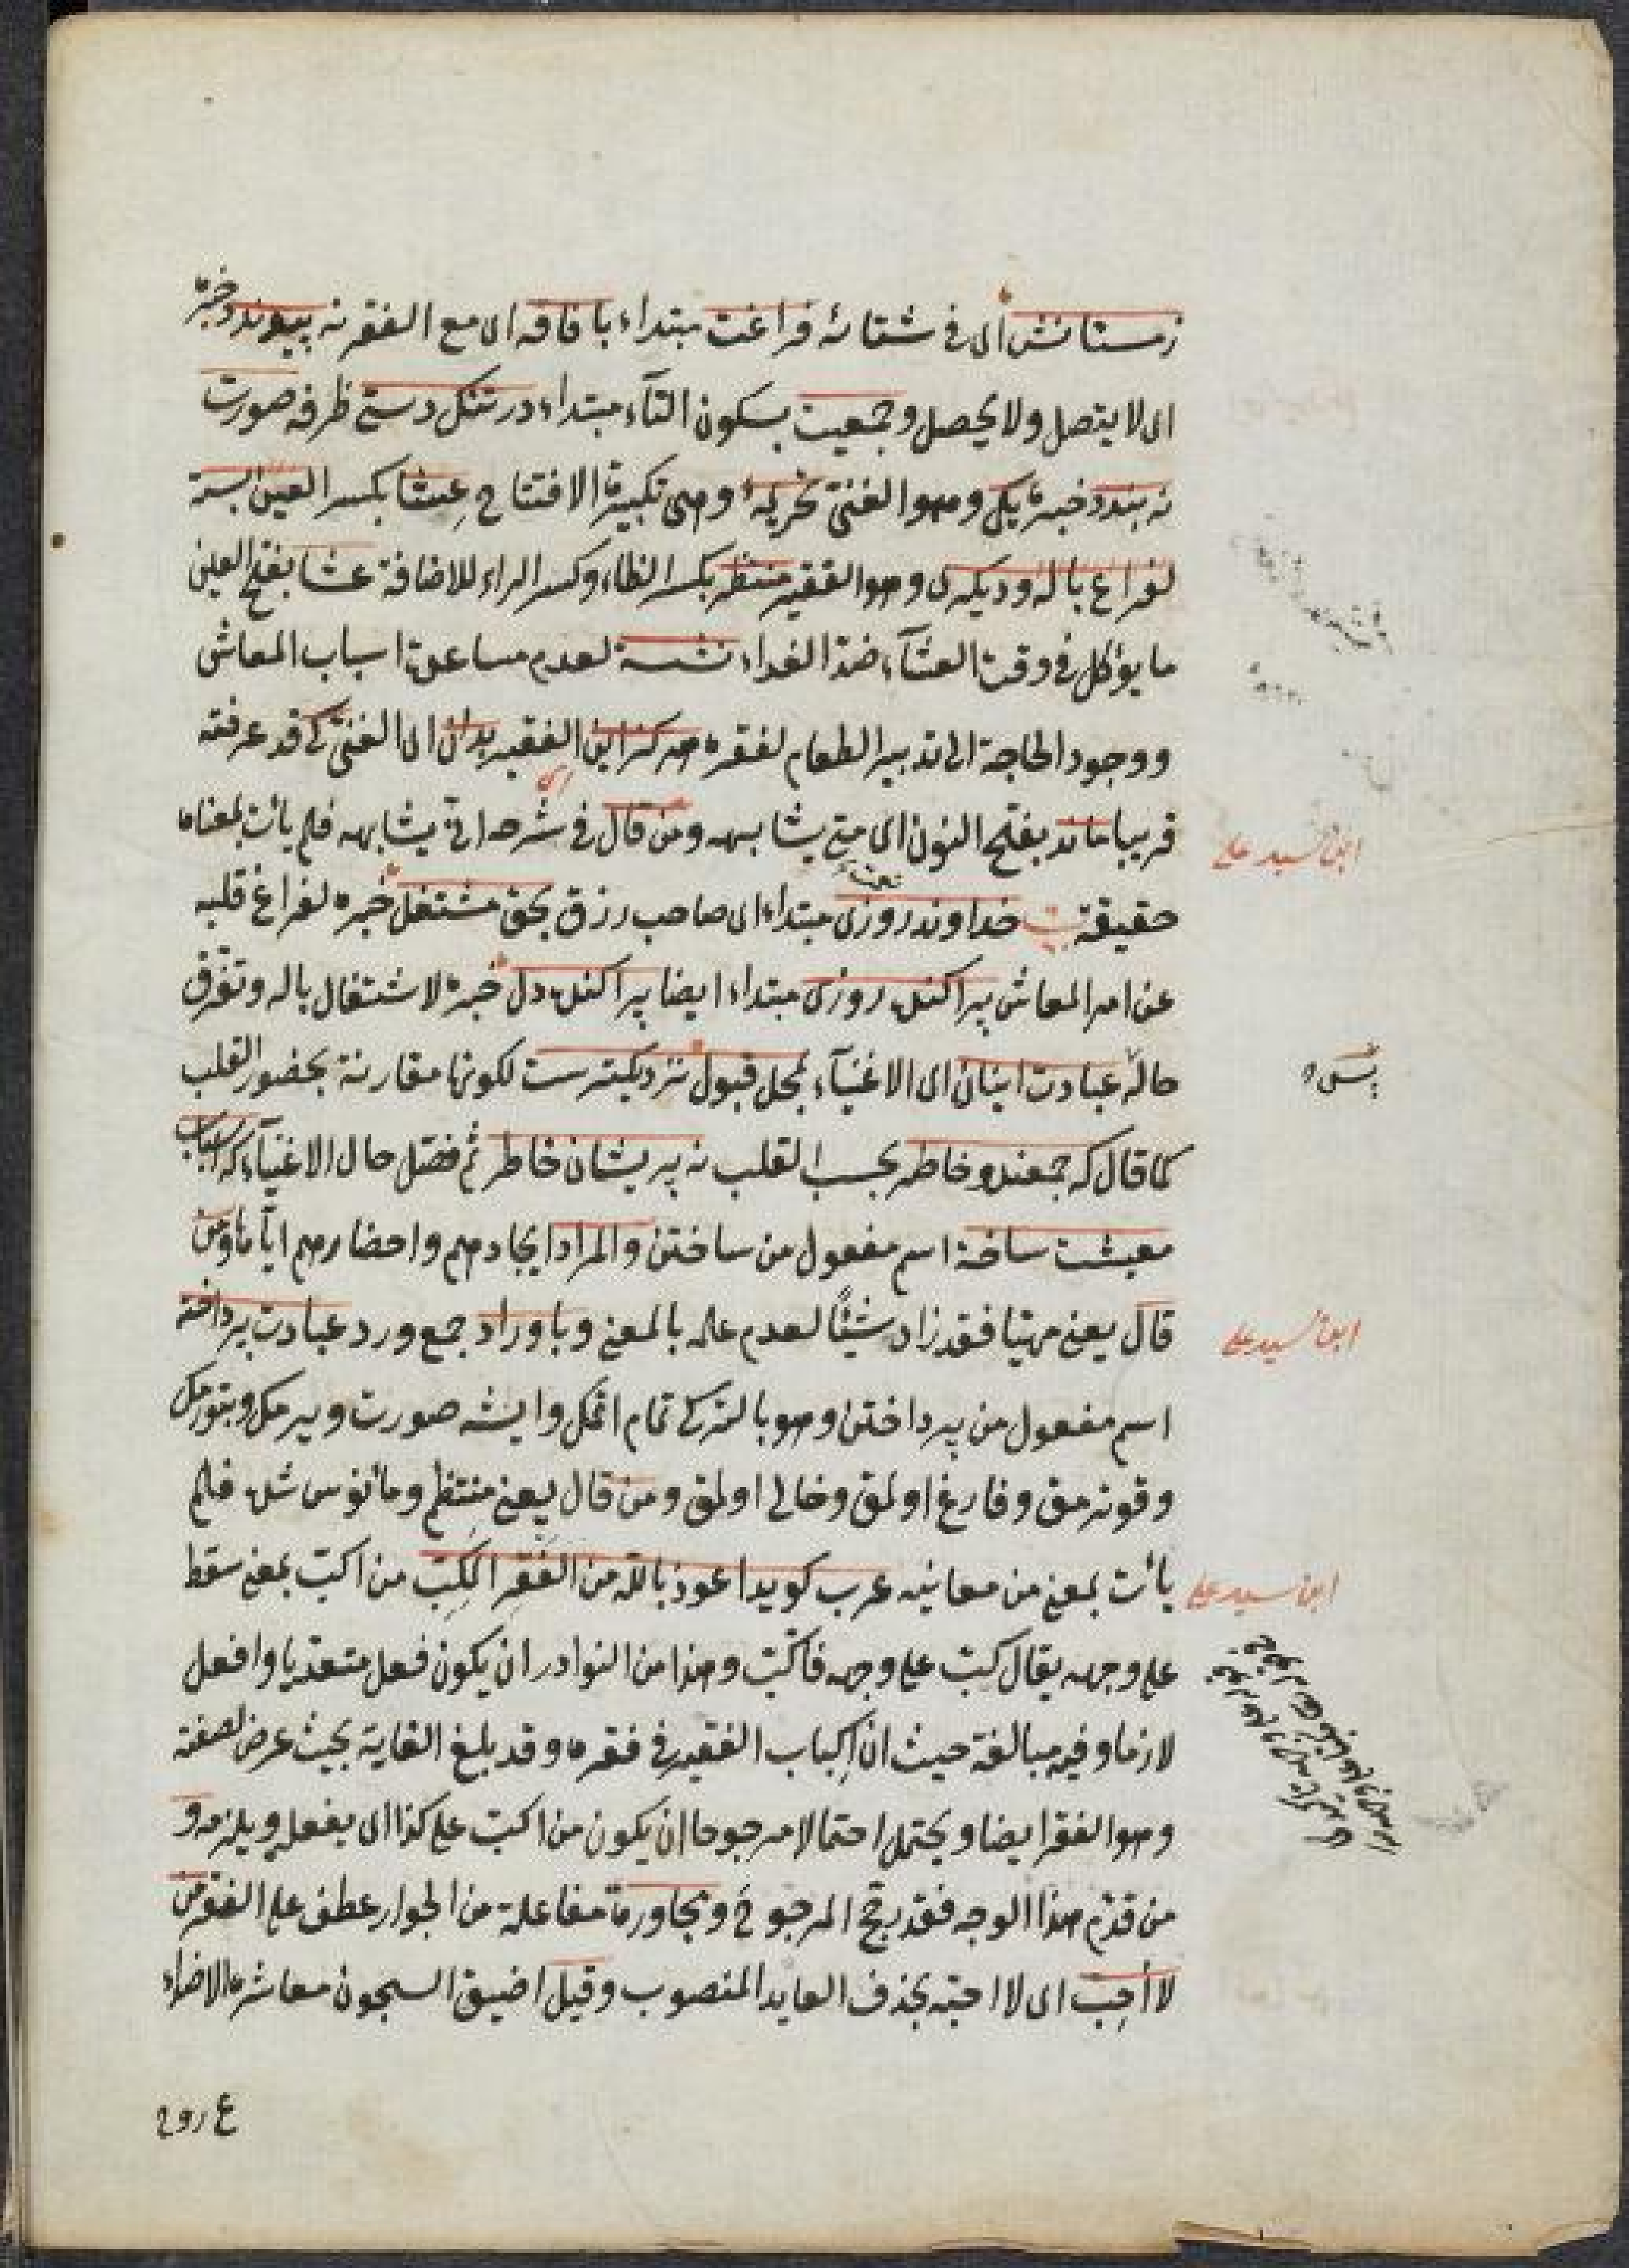 زمستانش ای فی شتائه فراغت مبتداء با فاقه ای مع الفقر نه پیوندد خبره
ای لا یتصل ولا یحصل وجمعیت بسکون التآء مبتداء در تنك دستی ظرفه صورت
نه بندد خبره یکی وهو الغنی تحریمهٔ وهی تکبیرة الافتتاح عِشا بکسر العین بسته
لفراغ باله ودیکری وهو الفقیر منتظر بکسر الظاء وکسر الراء للاضافة عشا بفتح العین
ما یؤکل فی وقت العشآء ضد الغداء نشسته لعدم مساعدة اسباب المعاش
ووجود الحاجة الی تدبیر الطعام لفقره هرکز این الفقیر بدان ای الغنی کی قد عرفته
قریبا ماند بفتح النون ای متی یشابهه ومن قال فی شرحه ای یشابهه فلم یأت بمعناه
ابن سید علی
حقیقة بیت خداوند روزی مبتداء ای صاحب رزق بحق مشتغل خبره لفراغ قلبه
عن امر المعاش پراکنده روزی مبتداء ایضا پراکنده دل خبره لاشتغال باله وتفرق
حاله عبادت اینان ای الاغنیآء بمحل قبول نزدیکترست لکونها مقارنة بحضور القلب
کما قال که جمعند وحاضر بحسب القلب نه پریشان خاطر ثم فصل حال الاغنیآء که اسباب
معیشت ساخته اسم مفعول من ساختن والمراد ایجادهم واحضارهم ایاها ومن
قال یعنی مهیا فقد زاد شیئًا لعدم علمه بالمعنی وباوراد جمع ورد عبادت پرداخته
ابن سید علی
اسم مفعول من پرداختن وهو بالترکی تمام اتمك وایشه صورت ویرمك وبتورمك
وقونرمق وفارغ اولمق وخالی اولمق ومن قال یعنی منتظم ومأنوس شده فلم
یأت بمعنی من معانیه عرب کوید اعوذ بالله من الفَقرِ المُکِبّ من اکبّ بمعنی سقط
ابن سید علی
علی وجهه یقال کبّ علی وجهه فاکبّ وهذا من النوادر ان یکون فعل متعدیا وافعل
لازما وفیه مبالغة حیث ان اِکباب الفقیر فی فقره وقد بلغ الغایة بحیث عرض لصفته
وهو الفقر ایضا ویحتمل احتمالا مرجوحا ان یکون من اکبّ علی کذا ای یفعله ویلزمه و
من قدّم هذا الوجه فقد رجّح المرجوح ومجاورة مفاعلة من الجوار عطف علی الفقر من
لا أحِبّ ای لا احبّه بحذف العاید المنصوب وقیل اضیق السجون معاشرة الاضداد